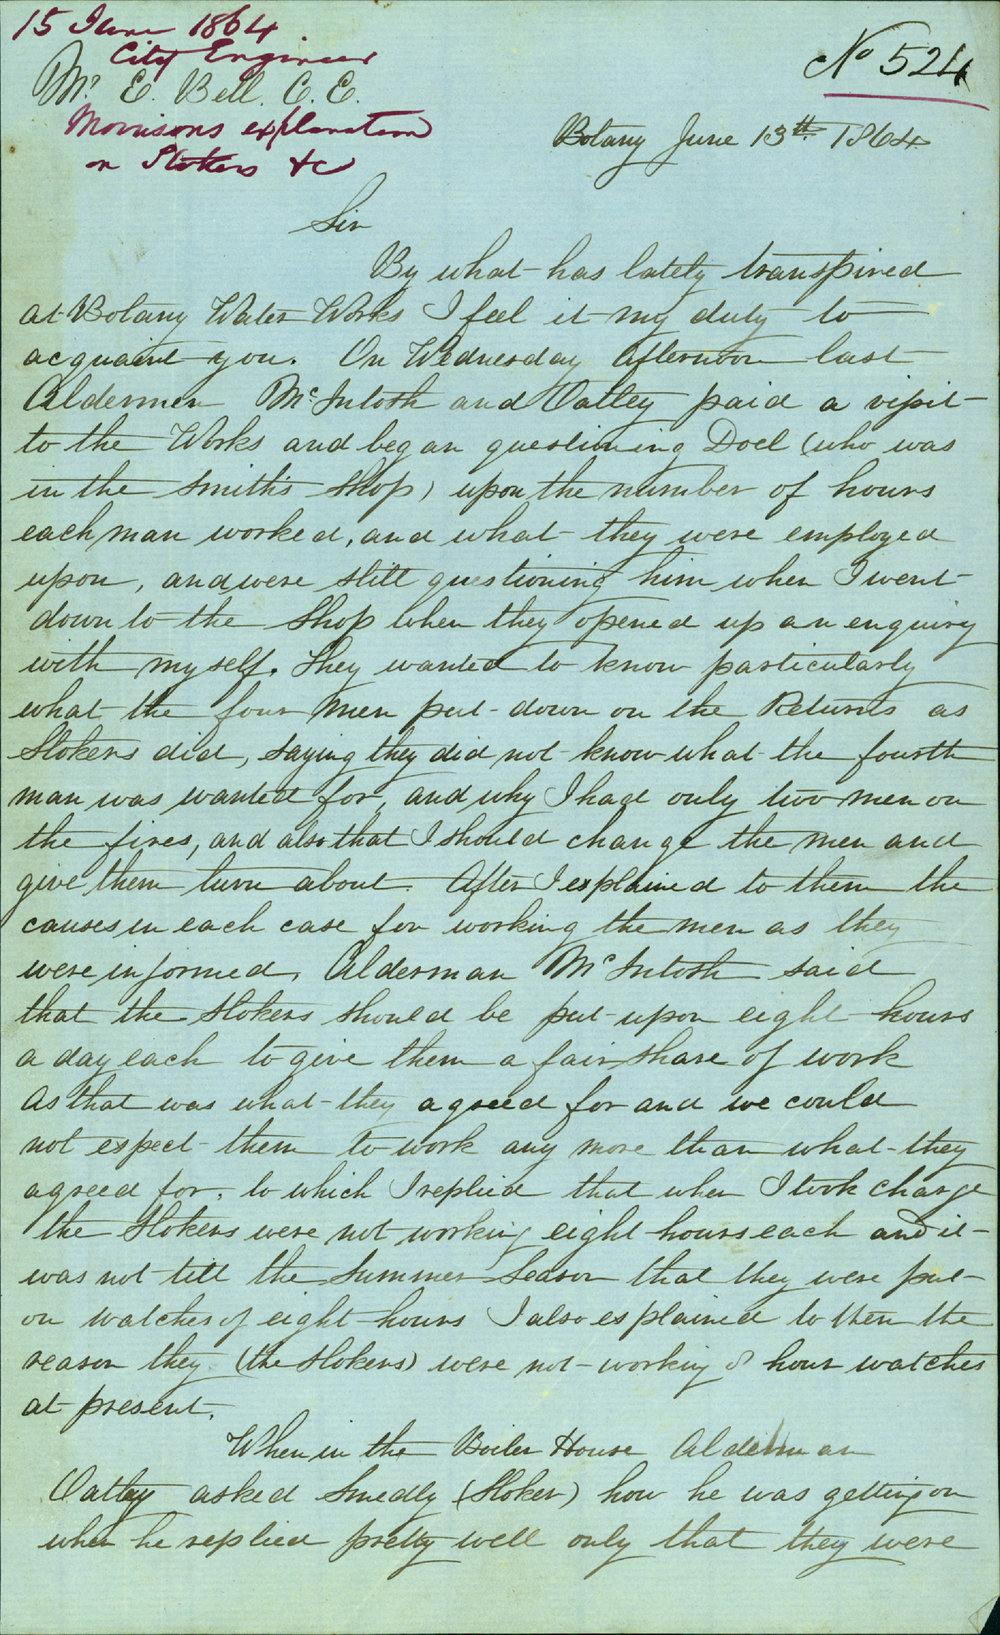 15 June 1864
City Engineer
Mr. E. Bell. C. E.
Morrisons explanation
on Stokers &c
No 524
Botany June 13th 1864
Sir
By what has lately transpired
at Botany Water Works I feel it my duty to
acquaint you. On Wednesday afternoon last
Aldermen McIntosh and Oatley paid a visit
to the Works and began questioning Doel (who was
in the smith's shop) upon the number of hours
each man worked, and what they were employed
upon, and were still questioning him when I went
down to the Shop when they opened up an enquiry
with myself. They wanted to know particularly
what the four men put down on the Returns as
Stokers did, saying they did not know what the fourth
man was wanted for, and why I had only two men on
the fires, and also that I should change the men and
give them turn about. After I explained to them the
causes in each case for working the men as they
were informed, Alderman McIntosh said
that the Stokers should be put upon eight hours
a day each to give them a fair share of work
as that was what they agreed for and we could
not expect them to work any more than what they
agreed for, to which I replied that when I took charge
the Stokers were not working eight hours each and it
was not till the Summer Season that they were put
on watches of eight hours I also explained to them the
reason they (the Stokers) were not working 8 hour watches
at present.
When in the Boiler House Alderman
Oatley asked Smedly (Stoker) how he was getting on
when he replied pretty well only that they were